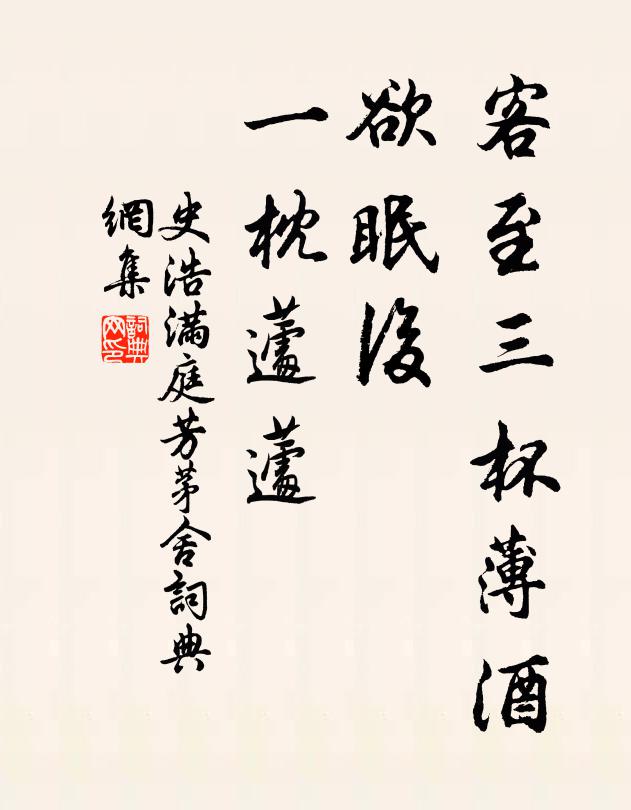 客至三杯薄酒
欲眠後
一枕蘧蘧
史浩滿庭芳茅舍詞典
網集
詞典网印